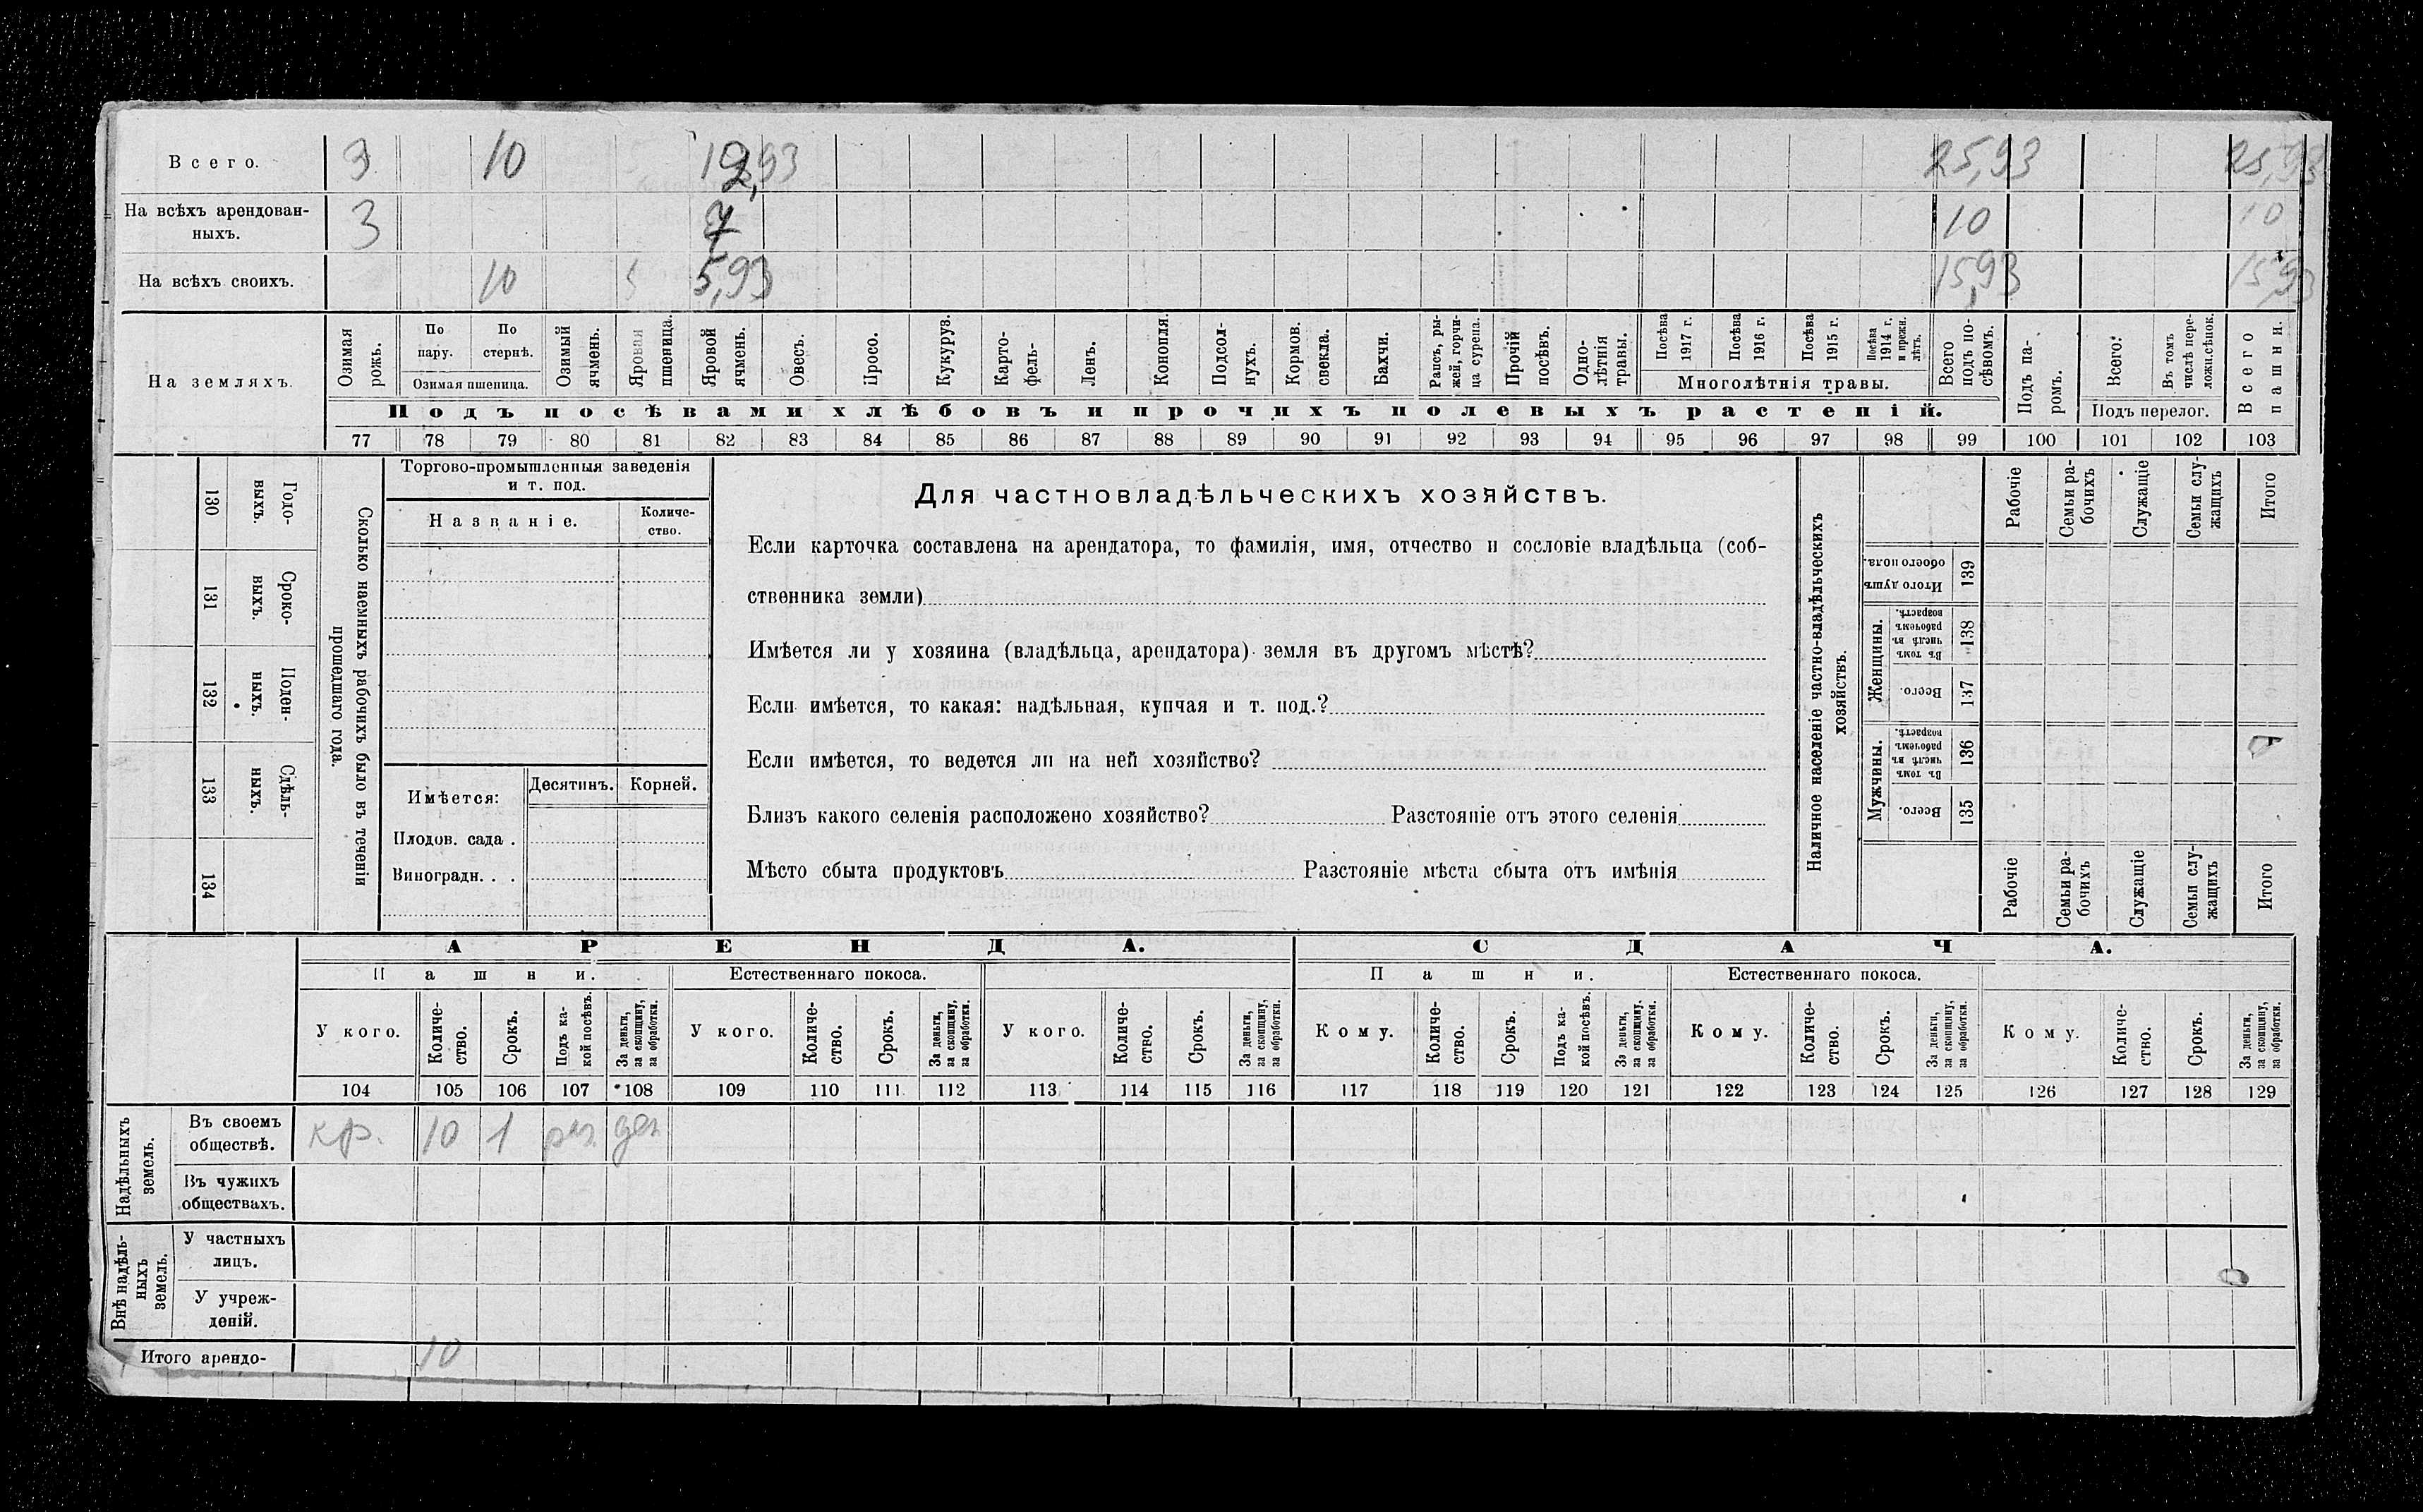 Всего. 3 10 12,93 25,93 25,93
На всѣхъ арендован-
ныхъ. 3 7 10 10
На всѣхъ своихъ. 10 5 5,93 15,93 15,93
На земляхъ.
Озимая рожь.
По пару.
По стернѣ.
Озимая пшеница.
Озимый ячмень.
Яровая пшеница.
Яровой ячмень.
Овесъ.
Просо.
Кукуруз.
Карто-
фель-
Ленъ.
Конопля.
Подсол-
нухъ.
Кормов. свекла.
Бахчи.
Рапсъ, ры-
жей, горчи-
ца сурепа.
Прочій посѣвъ.
Одно-
лѣтнія
травы.
Посѣва 1917 г.
Посѣва 1916 г.
Посѣва 1915 г.
Посѣва 1914 г. и прежн. лѣтъ.
Многолѣтнія травы.
Всего подъ по-
сѣвомъ.
Подъ па-
ромъ.
Всего.
Въ томъ числѣ пере-
ложн.сѣнок.
Подъ перелог.
Всего пашни.
Подъ посѣвами хлѣбовъ и прочихъ полевыхъ растеній.
77 78 79 80 81 82 83 84 85 86 87 88 89 90 91 92 93 94 95 96 97 98 99 100 101 102 103
130 Годо-
выхъ.
131 Сроко-
выхъ.
132 Поден-
ныхъ.
133 Сдѣль-
ныхъ.
134
Сколько наемныхъ рабочихъ было въ теченіи
прошедшаго года.
Торгово-промышленныя заведенія
и т. под.
Названіе. Количе-
ство.
Имѣется: Десятинъ. Корней.
Плодов. сада .
Виноградн. . .
Для частновладѣльческихъ хозяйствъ.
Если карточка составлена на арендатора, то фамилія, имя, отчество и сословіе владѣльца (соб-
ственника земли)
Имѣется ли у хозяина (владѣльца, арендатора) земля въ другомъ мѣстѣ?
Если имѣется, то какая: надѣльная, купчая и т. под.?
Если имѣется, то ведется ли на ней хозяйство?
Близъ какого селенія расположено хозяйство? Разстояніе отъ этого селенія
Мѣсто сбыта продуктовъ Разстояніе мѣста сбыта отъ имѣнія
Наличное населеніе частно-владѣльческихъ
хозяйствъ.
Рабочіе
Семьи ра-
бочихъ
Служащіе
Семьи слу-
жащихъ
Итого
Итого душъ
обоего пола. 139
Женщины.
Въ томъ числѣ въ рабочемъ возрастѣ. 138
Всего. 137
Мужчины.
Въ томъ числѣ въ рабочемъ возрастѣ. 136
Всего. 135
Рабочіе
Семьи ра-
бочихъ
Служащіе
Семьи слу-
жащихъ
Итого
АРЕНДА. СДАЧА.
Пашни. Естественнаго покоса. Пашни. Естественнаго покоса.
У кого.
Количе-
ство.
Срокъ.
Подъ ка-
кой посѣвъ.
За деньги,
за скопщину,
за обработки.
У кого.
Количе-
ство.
Срокъ.
За деньги,
за скопщину,
за обработки.
У кого.
Количе-
ство.
Срокъ.
За деньги,
за скопщину,
за обработки.
Кому.
Количе-
ство.
Срокъ.
Подъ ка-
кой посѣвъ.
За деньги,
за скопщину,
за обработки.
Кому.
Количе-
ство.
Срокъ.
За деньги,
за скопщину,
за обработки.
Кому.
Количе-
ство.
Срокъ.
За деньги,
за скопщину,
за обработки.
104 105 106 107 108 109 110 111 112 113 114 115 116 117 118 119 120 121 122 123 124 125 126 127 128 129
Надѣльныхъ
земель.
Въ своемъ
обществѣ. кр. 10 1 ден
Въ чужихъ
обществахъ.
Внѣ надѣль-
ныхъ
земель.
У частныхъ
лицъ.
У учреж-
деній.
Итого арендо- 10